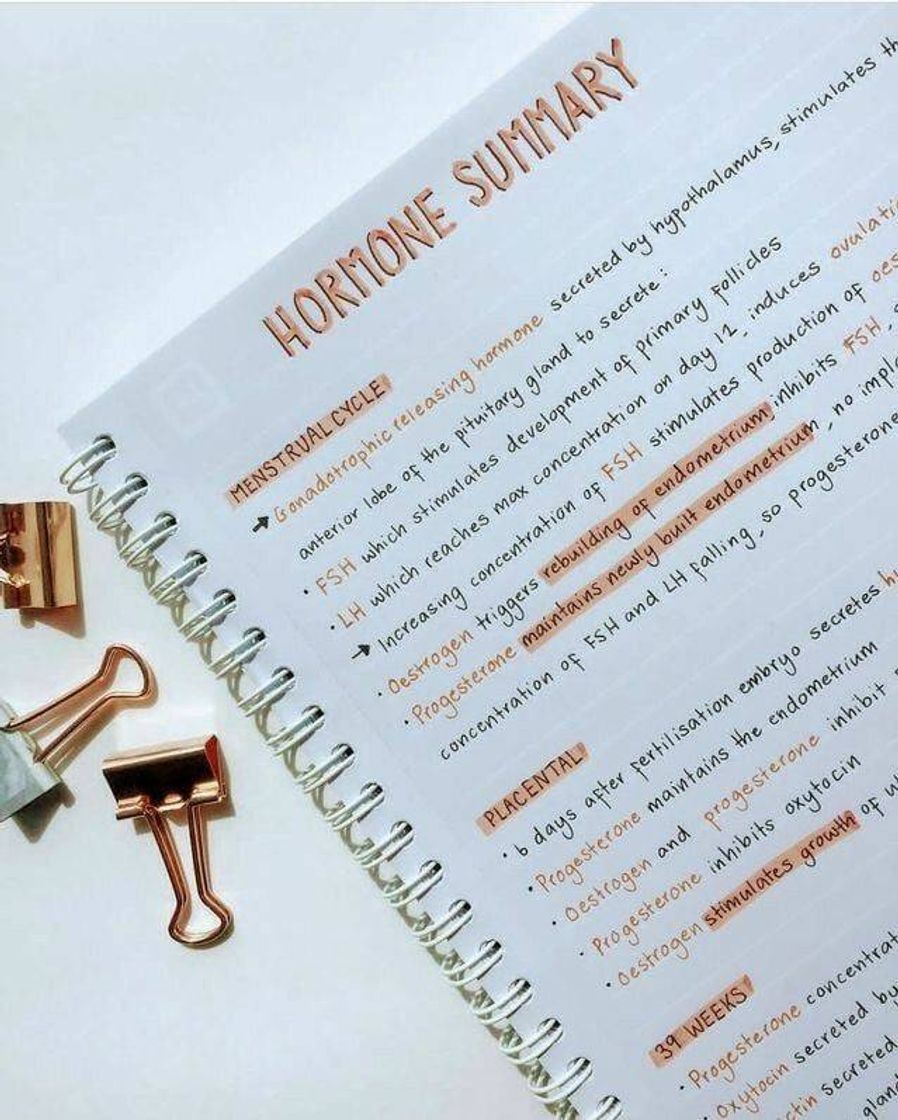 HORMONE SUMMARY
MENSTRUAL CYCLE
→ Gonadotrophic releasing hormone secreted by hypothalamus, stimulates
anterior lobe of the pituitary gland to secrete:
· FSH which stimulates development of primary follicles
· LH which reaches max concentration on day 12, induces
→ Increasing concentration of FSH stimulates production of
· Oestrogen triggers rebuilding of endometrium, inhibits FSH,
· Progesterone maintains newly built endometrium, no
concentration of FSH and LH falling, so progesterone
PLACENTAL
· 6 days after fertilisation embryo secretes
· Progesterone maintains the endometrium
· Oestrogen and progesterone inhibit
· Progesterone inhibits oxytocin
· Oestrogen stimulates growth of
39 WEEKS
· Progesterone
Oxytocin secreted by
secreted